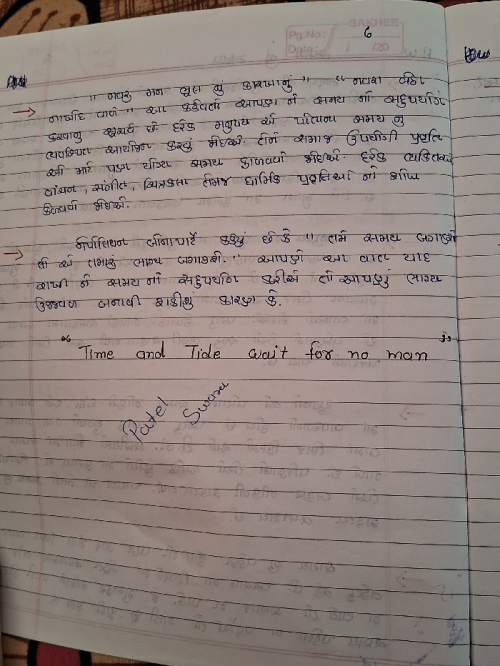 SAKHEE
Pg.No: 6
Date: / /20
" નવરુ મન ભૂલ નું કારખાનું " " નવરા બેઠા
નખ્ખોદ વાળે " આ કહેવતો આપણ ને સમય નો સદુપયોગ
કરવાનું સૂચવે છે. દરેક મનુષ્ય એ પોતાના સમય નું
વ્યવસ્થિત આયોજન કરવું જોઇએ. તેને સમાજ ઉપયોગી પ્રવૃત્તિ
ઓ માટે પણ યોગ્ય સમય ફાળવવો જોઇએ. દરેક વ્યક્તિએ
વાંચન, સંગીત, ચિત્રકલા તેમજ ધાર્મિક પ્રવૃત્તિઓ નો શોખ
કેળવવો જોઇએ.
નેપોલિયન બોનાપાર્ટે કહ્યું છે કે " તમે સમય બગાડશો
તો એ તમારું ભાગ્ય બગાડશે. " આપણે આ વાત યાદ
રાખી ને સમય નો સદુપયોગ કરીએ તો આપણું ભાગ્ય
ઉજ્જવળ બનાવી શકીશું કારણ કે.
" Time and Tide wait for no man "
Patel